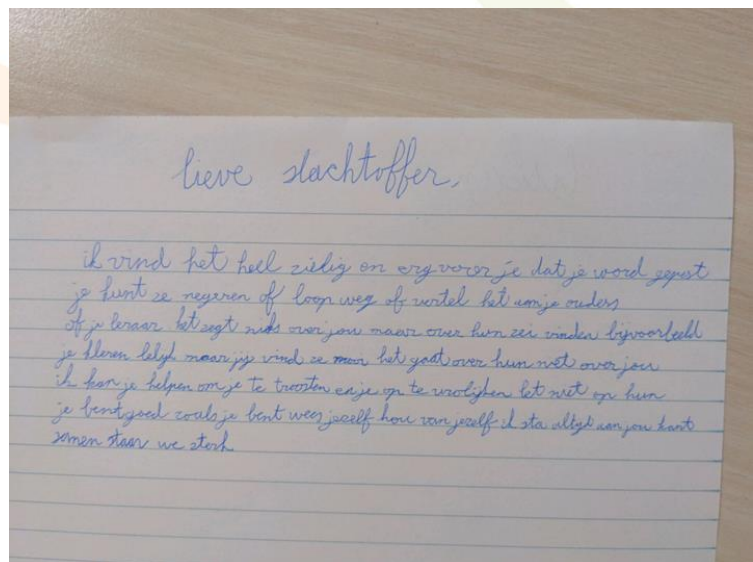 lieve slachtoffer,
ik vind het heel zielig en erg voor je dat je word gepest
je kunt ze negeren of loop weg of vertel het aan je ouders
of je leraar het zegt niks over jou maar over hun zei vinden bijvoorbeeld
je kleren lelijk maar jij vind ze mooi het gaat over hun niet over jou
ik kan je helpen om je te troosten en je op te vrolijken let niet op hun
je bent goed zoals je bent wees jezelf hou van jezelf ik sta altijd aan jou kant
samen staan we sterk